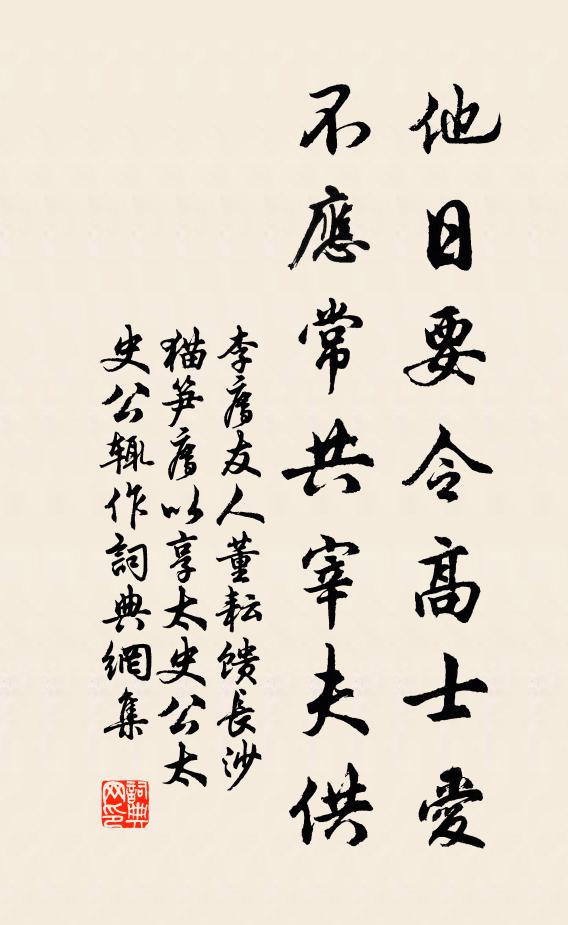 他日要令高士愛
不應常共宰夫供
李廌友人董耘饋長沙
猫笋廌以享太史公太
史公輒作詞典網集
詞典網印